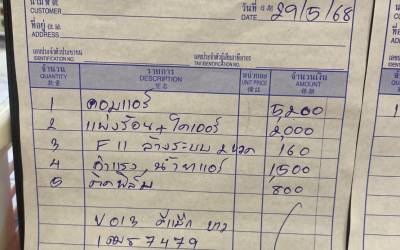 นามลูกค้า
CUSTOMER
วันที่
DATE 29/5/68
ที่อยู่
ADDRESS
เลขประจำตัวประชาชน
IDENTIFICATION NO.
เลขประจำตัวผู้เสียภาษีอากร
TAX IDENTIFICATION NO.
จำนวน รายการ หน่วยละ จำนวนเงิน
QUANTITY DESCRIPTION UNIT PRICE AMOUNT
1 คอมแอร์ 5,200
2 แผงร้อน + ไดเออร์ 2,000
3 F11 ล้างระบบ 2 ขวด 160
4 ค่าแรง น้ำยาแอร์ 1,500
5 ติดฟิล์ม 800
7479